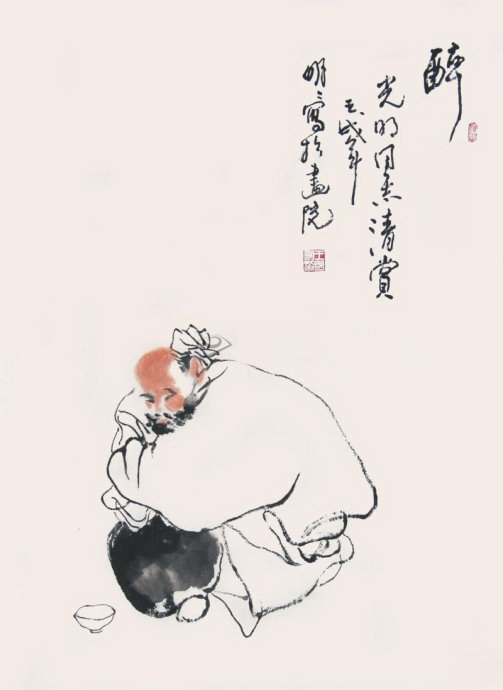 醉
光明同志清賞
壬戌年
明〻寫於畫院